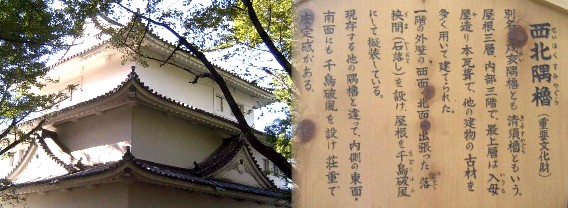 西北隅櫓（重要文化財）
せいほくすみやぐら
別名戌亥隅櫓とも清須櫓ともいう。
屋根三層、内部三階で、最上層は入母
屋造り本瓦葺で、他の建物の古材を
多く用いて建てられた。
一階の外壁の西面、北面に出張った「落
狭間」（石落し）を設け、屋根を千鳥破風
にして擬装している。
現存する他の隅櫓と違って、内側の東面・
南面にも千鳥破風を設け荘重で
安定感がある。